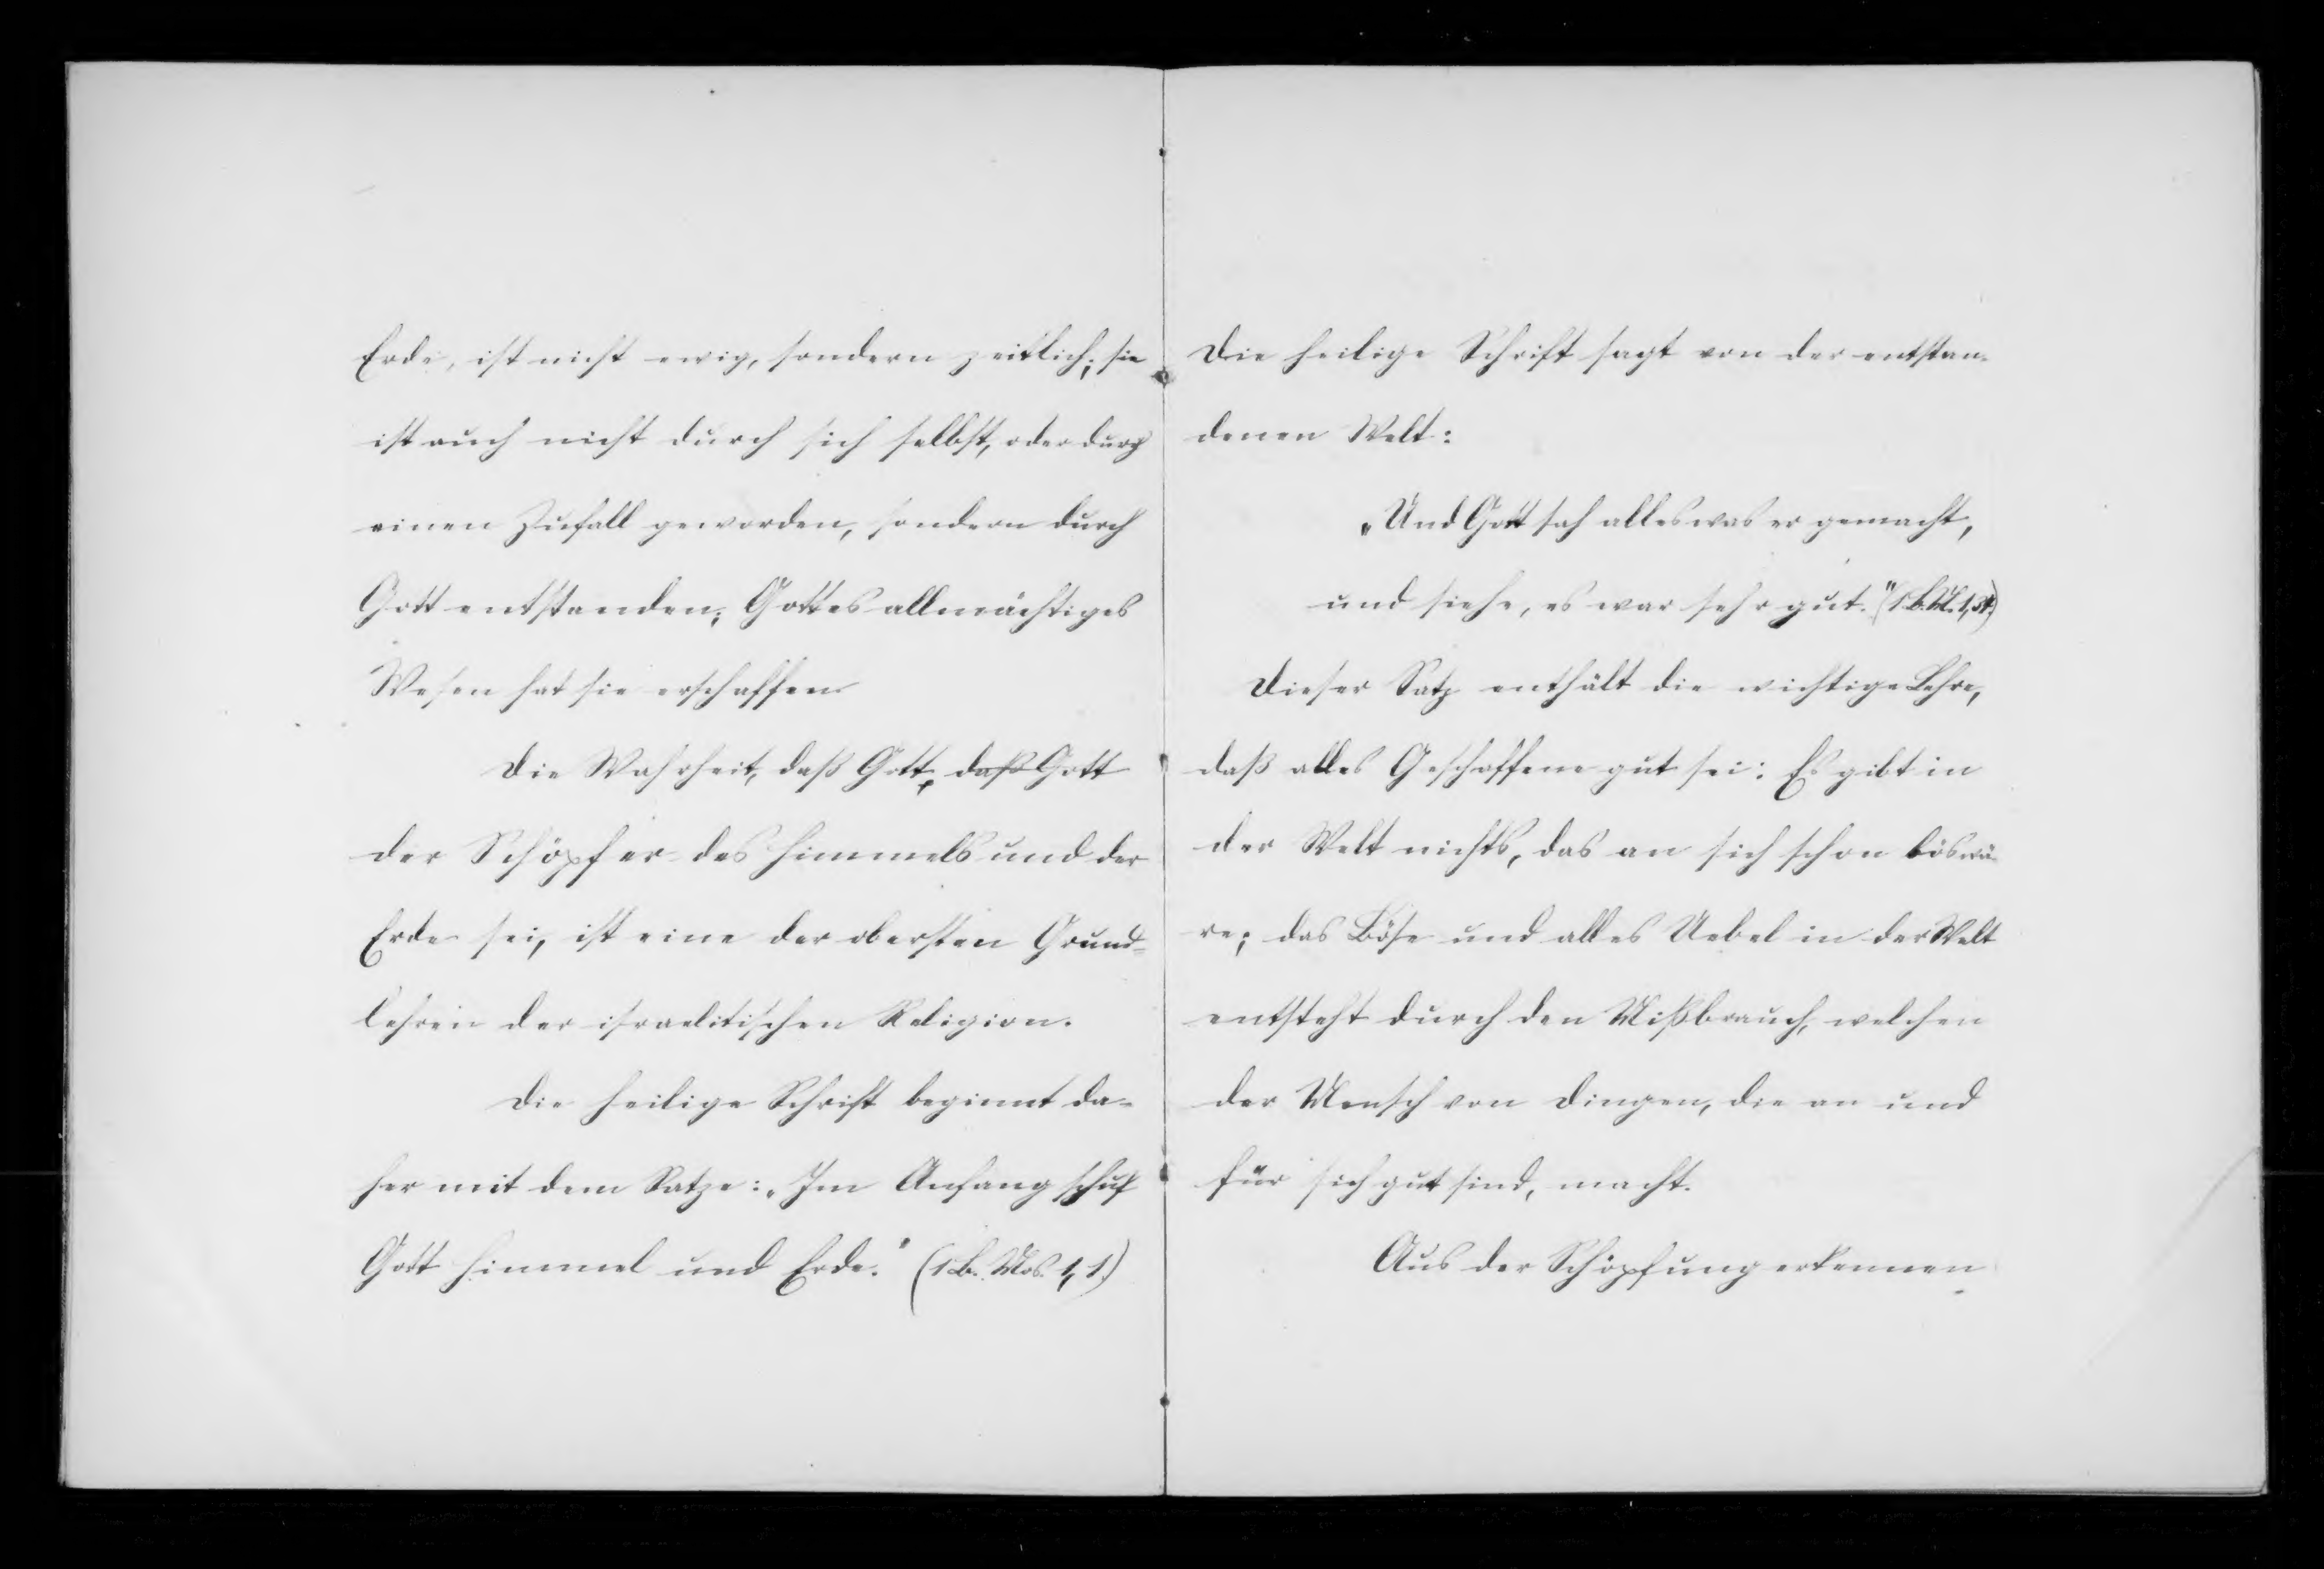 Erde, ist nicht ewig, sondern zeitlich; sie
ist auch nicht durch sich selbst, oder durch
einen Zufall geworden, sondern durch
Gott entstanden; Gottes allmächtiges
Wesen hat sie erschaffen
Die Wahrheit, daß Gott, daß Gott
der Schöpfer des Himmels und der
Erde sei, ist eine der obersten Grund=
lehren der israelitischen Religion.
Die heilige Schrift beginnt da-
her mit dem Satze: „Im Anfang schuf
Gott Himmel und Erde." (1 B. Mos. 1, 1.)
Die heilige Schrift sagt von der entstan-
denen Welt:
„Und Gott sah alles was er gemacht,
und siehe, es war sehr gut." (1 B. M. 1, 31.)
Dieser Satz enthält die wichtige Lehre,
daß alles Geschaffene gut sei: Es gibt in
der Welt nichts, das an sich schon bös wä-
re; das Böse und alles Uebel in der Welt
entsteht durch den Mißbrauch, welchen
der Mensch von Dingen, die an und
für sich gut sind, macht.
Aus der Schöpfung erkennen